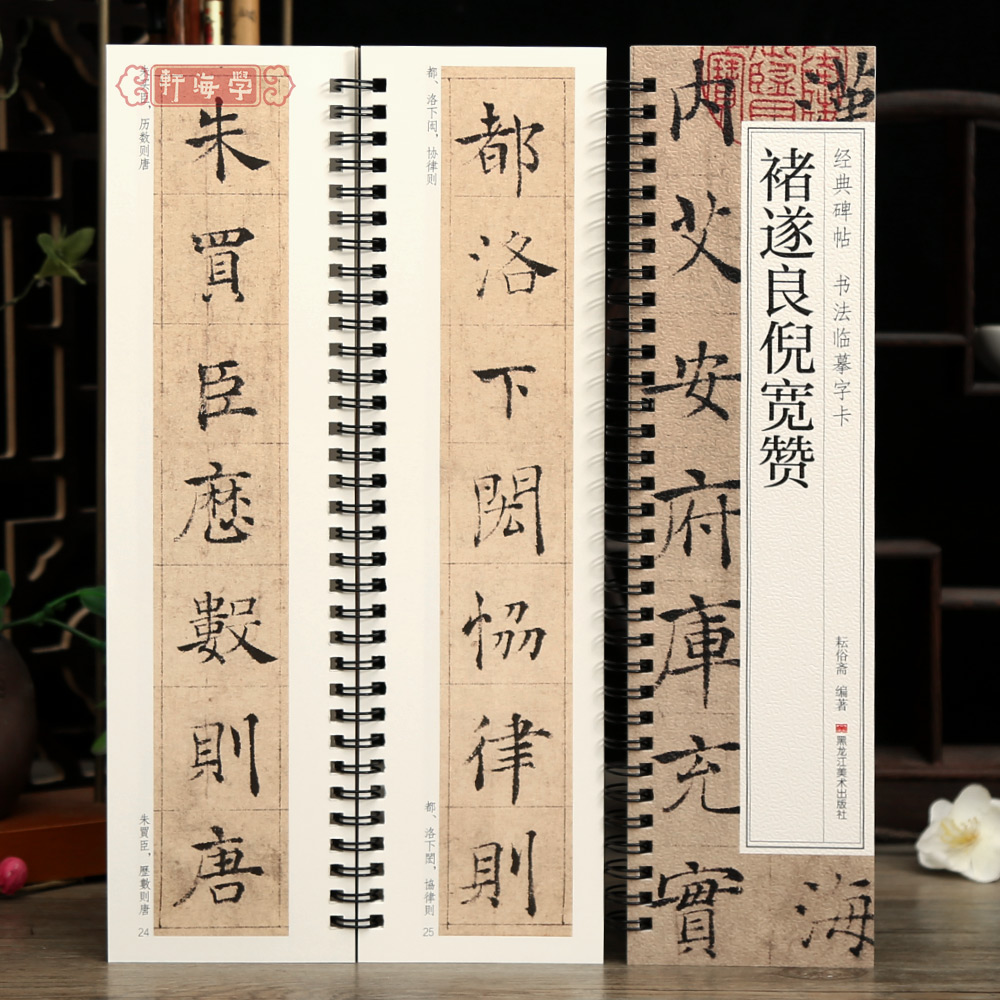 軒海學
朱买臣，历数则唐
朱買臣歷數則唐
朱買臣，歷數則唐
24
都、洛下闳，协律则
都洛下閎協律則
都、洛下閎，協律則
25
漢
海
内艾安府庫充實
经典碑帖 书法临摹字卡
褚遂良倪宽赞
耘俗斋 编著
黑龙江美术出版社